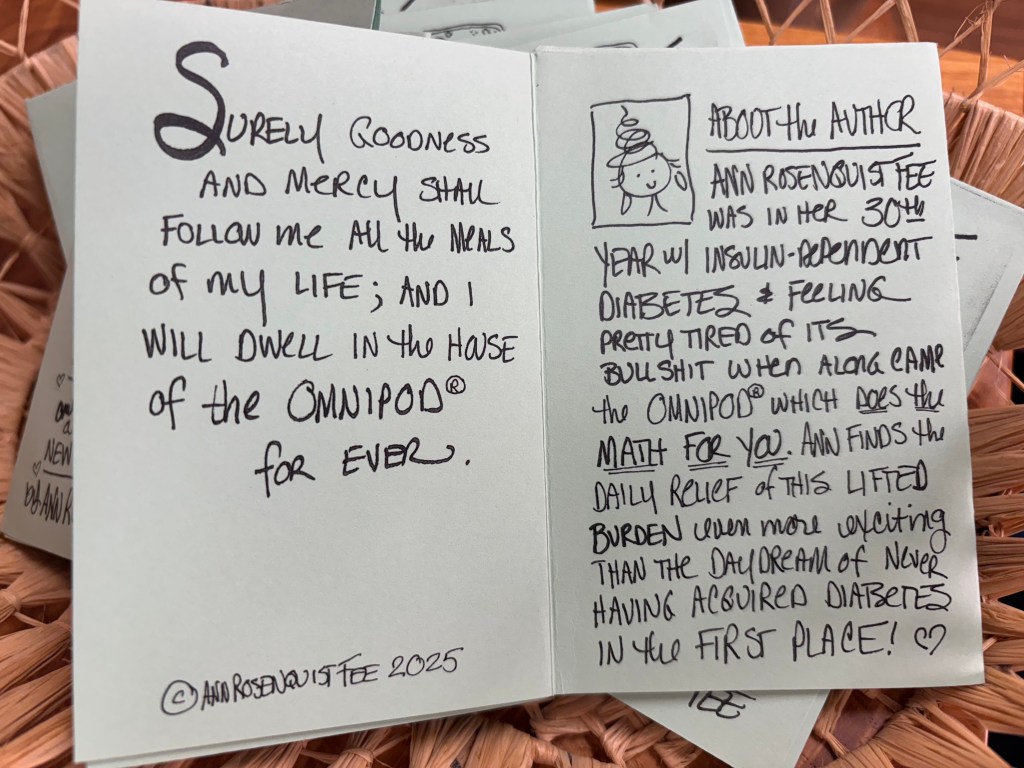 SURELY GOODNESS
AND MERCY SHALL
FOLLOW me All the MEALS
of my LIFE; AND I
WILL DWELL IN the HOUSE
of the OMNIPOD®
for EVER.
© ANN ROSENQUIST FEE 2025
ABOUT the AUTHOR
ANN ROSENQUIST FEE
WAS IN HER 30th
YEAR w/ INSULIN-DEPENDENT
DIABETES & FEELING
PRETTY TIRED of ITS
BULLSHIT WHEN ALONG CAME
the OMNIPOD® WHICH DOES the
MATH FOR YOU. ANN FINDS the
DAILY RELIEF of THIS LIFTED
BURDEN even more exciting
THAN THE DAYDREAM of NEVER
HAVING ACQUIRED DIABETES
IN the FIRST PLACE! ♡
NEW
by ANN R
FEE